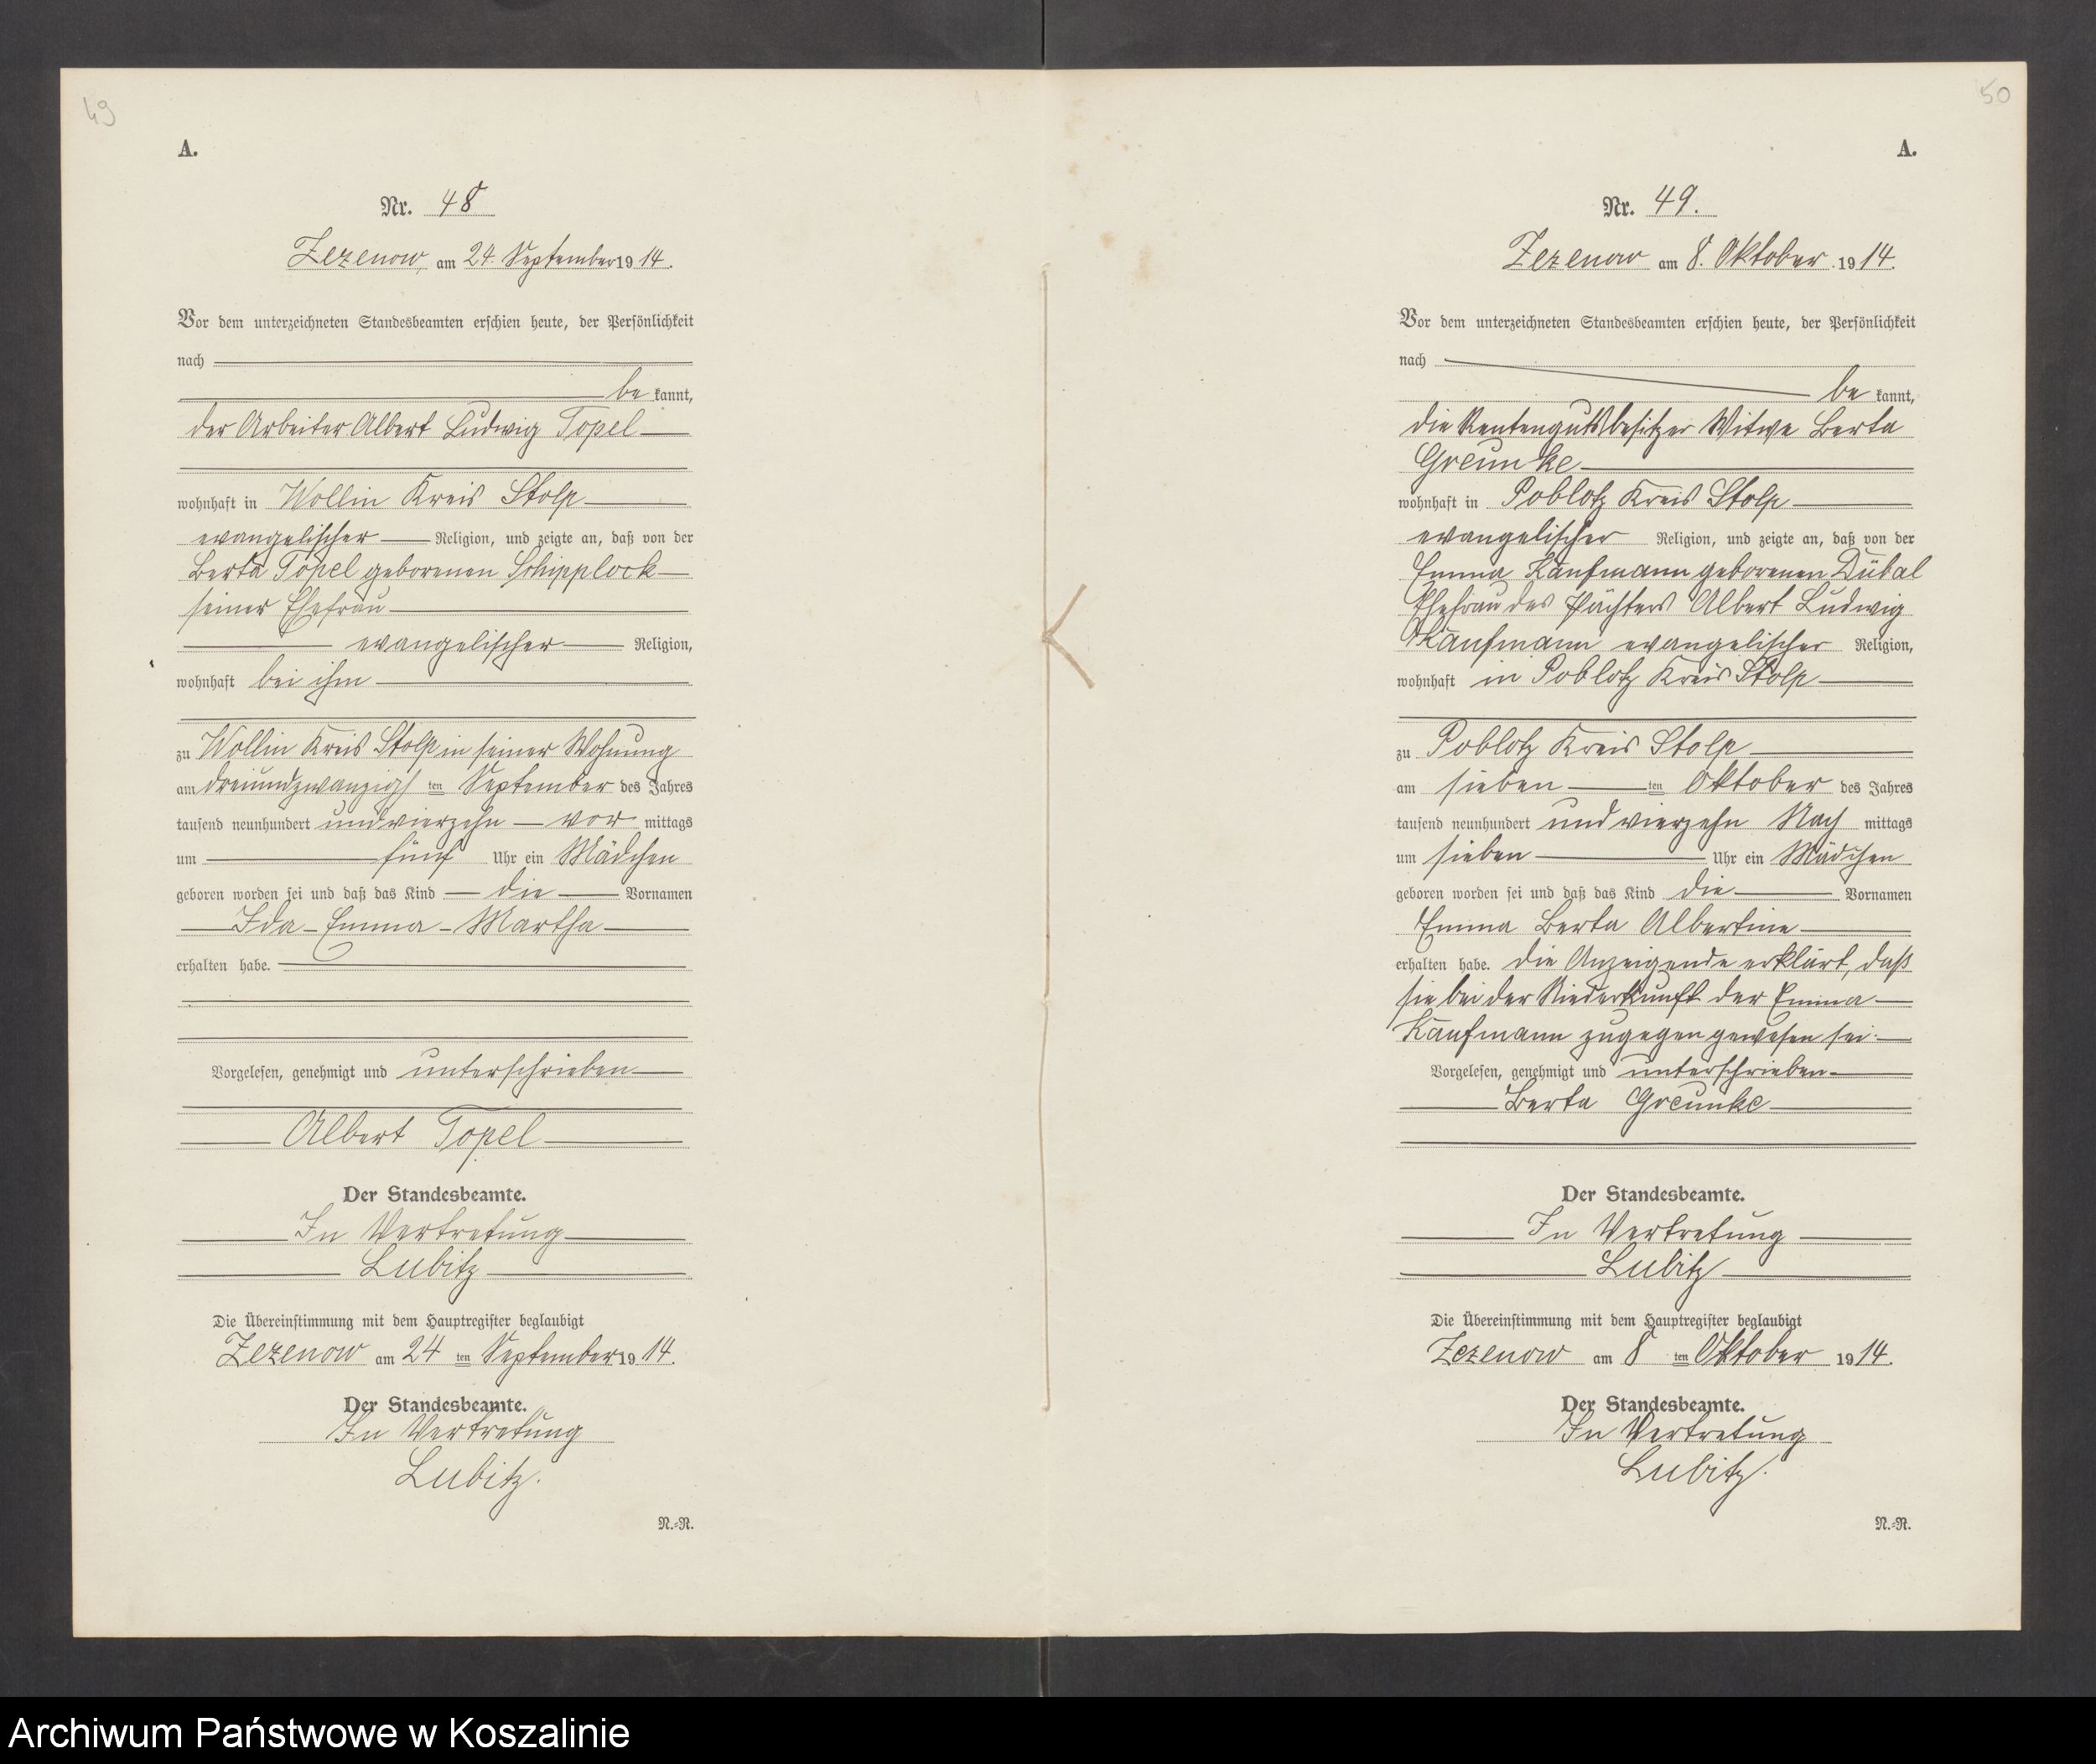 49
A.
Nr. 48
Zezenow, am 24. September 1914.
Vor dem unterzeichneten Standesbeamten erschien heute, der Persönlichkeit
nach
be kannt,
der Arbeiter Albert Ludwig Topel
wohnhaft in Wollin Kreis Stolp
evangelischer Religion, und zeigte an, daß von der
Berta Topel geborenen Schipplock
seiner Ehefrau
evangelischer Religion,
wohnhaft bei ihm
zu Wollin Kreis Stolp in seiner Wohnung
am dreiundzwanzigsten September des Jahres
tausend neunhundert undvierzehn vor mittags
um fünf Uhr ein Mädchen
geboren worden sei und daß das Kind die Vornamen
Ida - Emma - Martha
erhalten habe.
Vorgelesen, genehmigt und unterschrieben
Albert Topel
Der Standesbeamte.
In Vertretung
Lubitz
Die Übereinstimmung mit dem Hauptregister beglaubigt
Zezenow am 24 ten September 1914.
Der Standesbeamte.
In Vertretung
Lubitz.
N.=R.
50
A.
Nr. 49.
Zezenow am 8. Oktober 1914.
Vor dem unterzeichneten Standesbeamten erschien heute, der Persönlichkeit
nach
be kannt,
die Rentengutsbesitzer Witwe Berta
Greunke
wohnhaft in Poblotz Kreis Stolp
evangelischer Religion, und zeigte an, daß von der
Emma Kaufmann geborenen Dübal
Ehefrau des Pächters Albert Ludwig
Kaufmann evangelischer Religion,
wohnhaft in Poblotz Kreis Stolp
zu Poblotz Kreis Stolp
am sieben ten Oktober des Jahres
tausend neunhundert undvierzehn Nach mittags
um sieben Uhr ein Mädchen
geboren worden sei und daß das Kind die Vornamen
Emma Berta Albertine
erhalten habe. Die Anzeigende erklärt, daß
sie bei der Niederkunft der Emma
Kaufmann zugegen gewesen sei.
Vorgelesen, genehmigt und unterschrieben
Berta Greunke
Der Standesbeamte.
In Vertretung
Lubitz
Die Übereinstimmung mit dem Hauptregister beglaubigt
Zezenow am 8 ten Oktober 1914.
Der Standesbeamte.
In Vertretung
Lubitz.
N.=R.
Archiwum Państwowe w Koszalinie